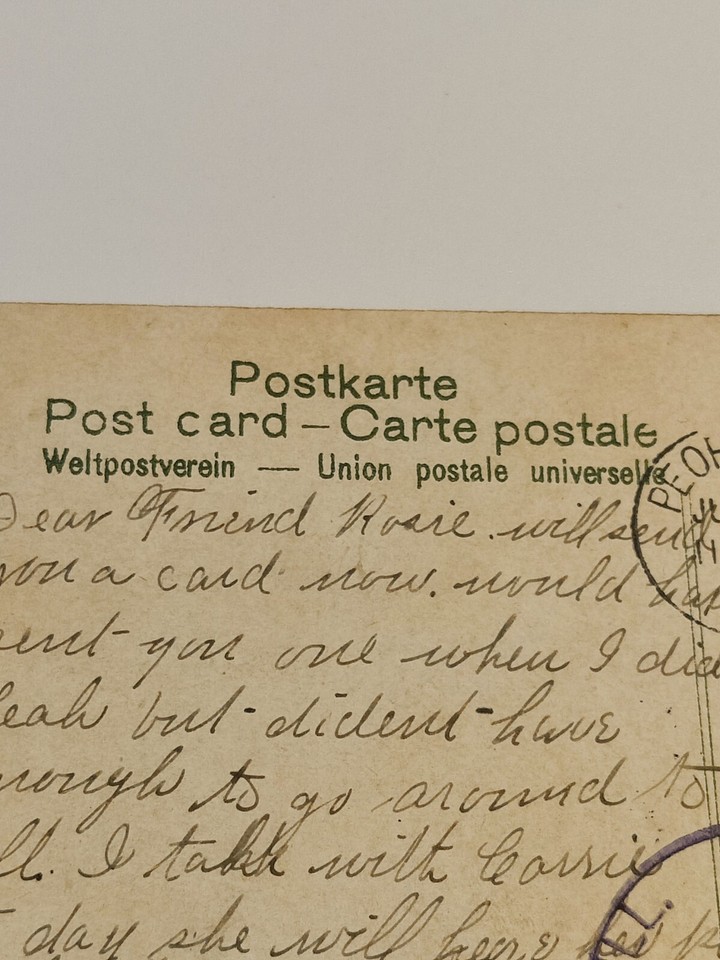 Postkarte
Post card – Carte postale
Weltpostverein — Union postale universelle
PEO
Dear Friend Rosie. will send
you a card now. would hav
sent you one when I did
Leah but dident have
nough to go around to
ll. I talk with Carrie
day she will have her p
LL.